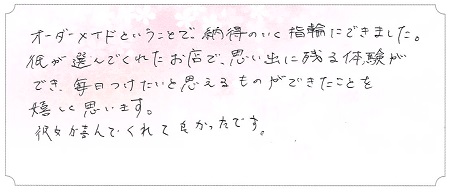 オーダーメイドということで、納得のいく指輪にできました。
彼が選んでくれたお店で、思い出に残る体験が
でき、毎日つけたいと思えるものができたことを
嬉しく思います。
彼女が喜んでくれて良かったです。